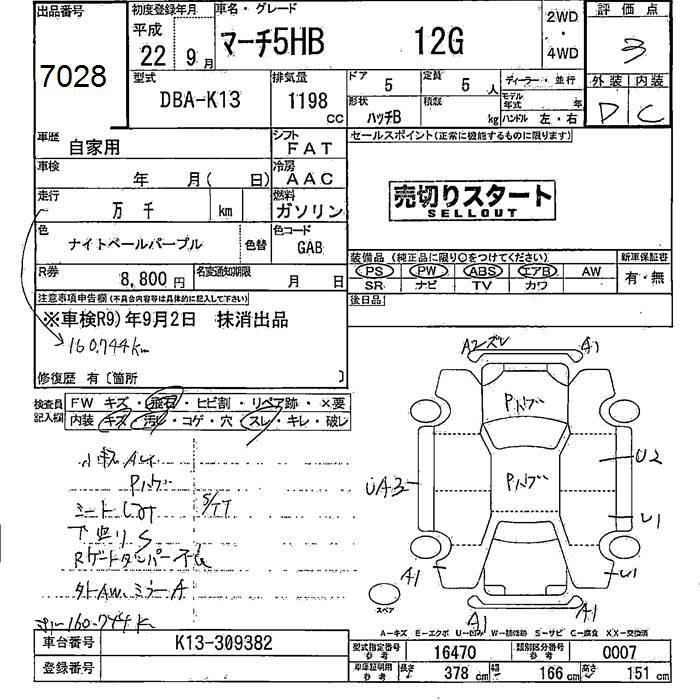 出品番号
7028
初度登録年月
平成
22 9 月
車名・グレード
マーチ5HB 12G
2WD
・
4WD
評価点
3
外装 内装
D C
型式
DBA-K13
排気量
1198
CC
ドア
5
定員
5 人
形状
ハッチB
積載
kg
ディーラー・並行
モデル
年式 年
ハンドル 左・右
車歴
自家用
シフト
FAT
車検
年 月( 日)
冷房
AAC
走行
万 千 km
燃料
ガソリン
色
ナイトベールパープル
色替
色コード
GAB
R券
8,800 円
名変通知期限
月 日
セールスポイント(正常に機能するものに限ります)
売切りスタート
SELLOUT
装備品 (純正品に限り○をつけてください)
PS PW ABS エアB AW
SR ナビ TV カワ
新車保証書
有・無
後日品
注意事項申告欄(不具合内容等は具体的に記入して下さい)
※車検R9)年9月2日 抹消出品
160.744km
修復歴 有〔箇所 〕
検査員
記入欄
FW キズ・飛石・ヒビ割・リペア跡・×要
内装 キズ・汚レ・コゲ・穴・スレ・キレ・破レ
小キズ
Pハゲ
下廻り S
Rゲートダンパー不良
ミラー A
160.744 K
A2 ズレ
A1
Pハゲ
Pハゲ
U2
UA3
U1
A1
U1
A1
A1
スペア
A-キズ E-エクボ U-凹み W-補修跡 S-サビ C-腐食 XX-交換済
車台番号
K13-309382
登録番号
型式指定番号
参考
16470
類別区分番号
参考
0007
車庫証明用
参考
長さ
378 cm
幅
166 cm
高さ
151 cm